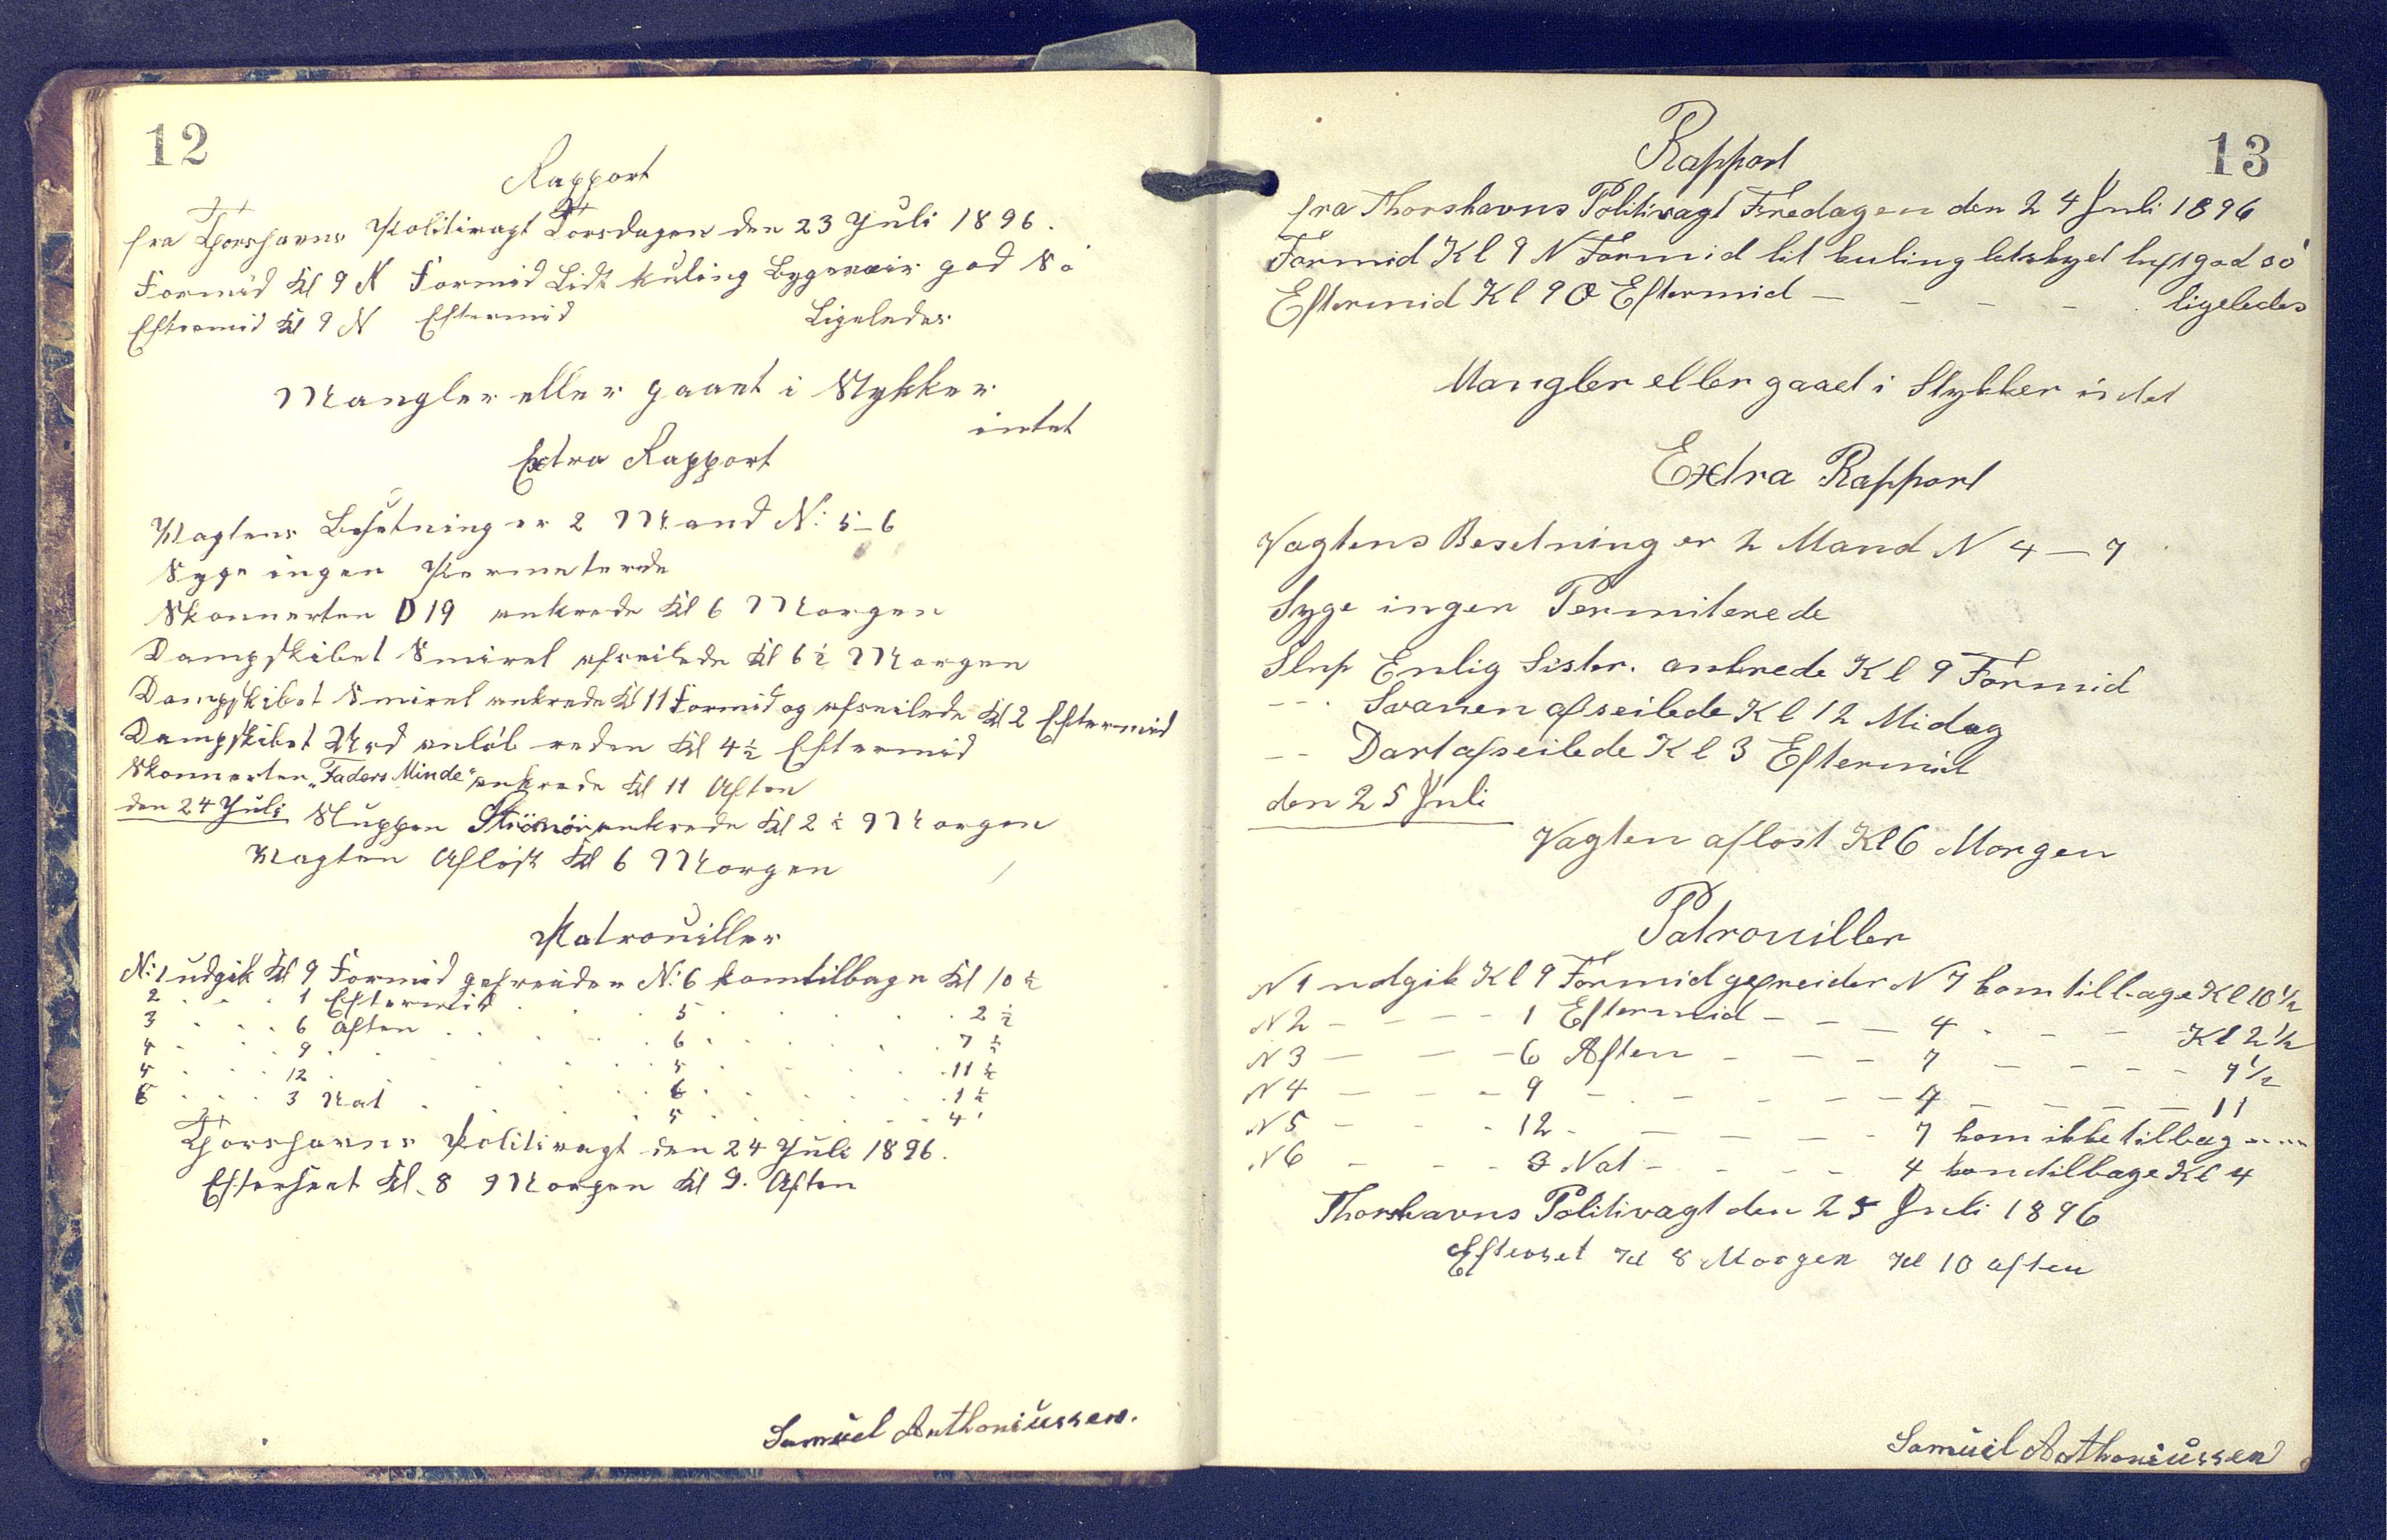 12
Rapport
fra Thorshavns Politivagt Torsdagen den 23 Juli 1896.
Formid Kl 9 N Formid Lidt kuling Bygeveir god Sö
Eftermid Kl 9 N Eftermid Ligeledes
Mangler eller gaaet i Stykker
intet
Extra Rapport
Vagtens Besetning er 2 Mand N: 5-6
Syge ingen Permeterede
Skonnerten D 19 ankrede Kl 6 Morgen
Dampskibet Smirel afseilede Kl 6½ Morgen
Dampskibet Smirel ankrede Kl 11 Formid og afseilede Kl 2 Eftermid
Dampskibet anlöb reden Kl 4½ Eftermid
Skonnerten „Faders Minde" ankrede Kl 11 Aften
den 24 Juli Sluppen Strömöi ankrede Kl 2½ Morgen
Vagten Aflöst Kl 6 Morgen
Patrouiller
N: 1 udgik Kl 9 Formid gefreider N: 6 kom tilbage Kl 10½
2 . . . 1 Eftermid . . . 5 . . . 2½
3 . . . 6 Aften . . . 6 . . . 7½
4 . . . 9 . . . 5 . . . 11½
5 . . . 12 . . . 6 . . . 1½
6 . . . 3 Nat . . . 5 . . . 4
Thorshavns Politivagt den 24 Juli 1896.
Efterseet Kl. 8 Morgen Kl 9. Aften
Samuel Anthoniussen.
13
Rapport
fra Thorshavns Politivagt Fredagen den 24 Juli 1896
Formid Kl 9 N Formid lit kuling letskyet luft god sö
Eftermid Kl 9 O Eftermid — - - - ligeledes
Mangler eller gaaet i Stykker indet
Extra Rapport
Vagtens Besetning er 2 Mand N 4 — 7
Syge ingen Permiterede
Slup Enlig Sister. ankrede Kl 9 Formid
-- . Svanen afseilede Kl 12 Midag
-- Dart afseilede Kl 3 Eftermid
den 25 Juli
Vagten aflost Kl 6 Morgen
Patrouiller
N 1 udgik Kl 9 Formid gefreider N 7 kom tilbage Kl 10½
N 2 — - - - 1 Eftermid - - — 4 - - - Kl 2½
N 3 — — - 6 Aften - - - 7 - - - - 7½
N 4 — — - 9 - - - - - 4 - - - 11
N 5 - - - 12 - - - - - 7 kom ikke tilbag
N 6 - - - 3 Nat - - - - 4 kom tilbage Kl 4
Thorshavns Politivagt den 25 Juli 1896
Efterset Kl 8 Morgen Kl 10 aften
Samuel Anthoniussen